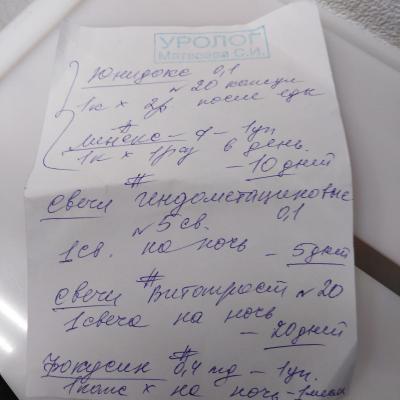 УРОЛОГ
Матвеева С.И.
Юнидокс 0,1
N 20 капсул
1к х 2р. после еды
#
Линекс-ф-1уп
1к х 1раз в день.
- 10 дней
#
Свечи Индометациновые
0,1
N 5 св.
1св. на ночь - 5дней
#
Свечи Витапрост N 20
1 свеча на ночь
- 20 дней
#
Фокусин 0,4 мд - 1уп.
1капс х на ночь - 1мес